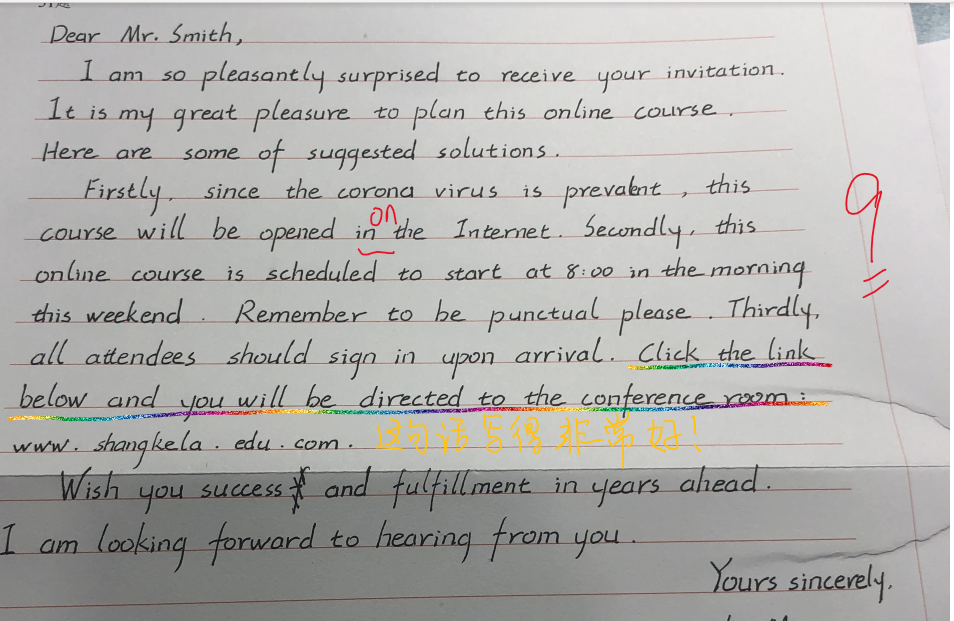 Dear Mr. Smith,
I am so pleasantly surprised to receive your invitation.
It is my great pleasure to plan this online course.
Here are some of suggested solutions.
Firstly, since the corona virus is prevalent, this
on
course will be opened in the Internet. Secondly, this
online course is scheduled to start at 8:00 in the morning
this weekend. Remember to be punctual please. Thirdly,
all attendees should sign in upon arrival. Click the link
below and you will be directed to the conference room:
www.shangkela.edu.com. 这句话写得非常好!
Wish you success and fulfillment in years ahead.
I am looking forward to hearing from you.
Yours sincerely,
9